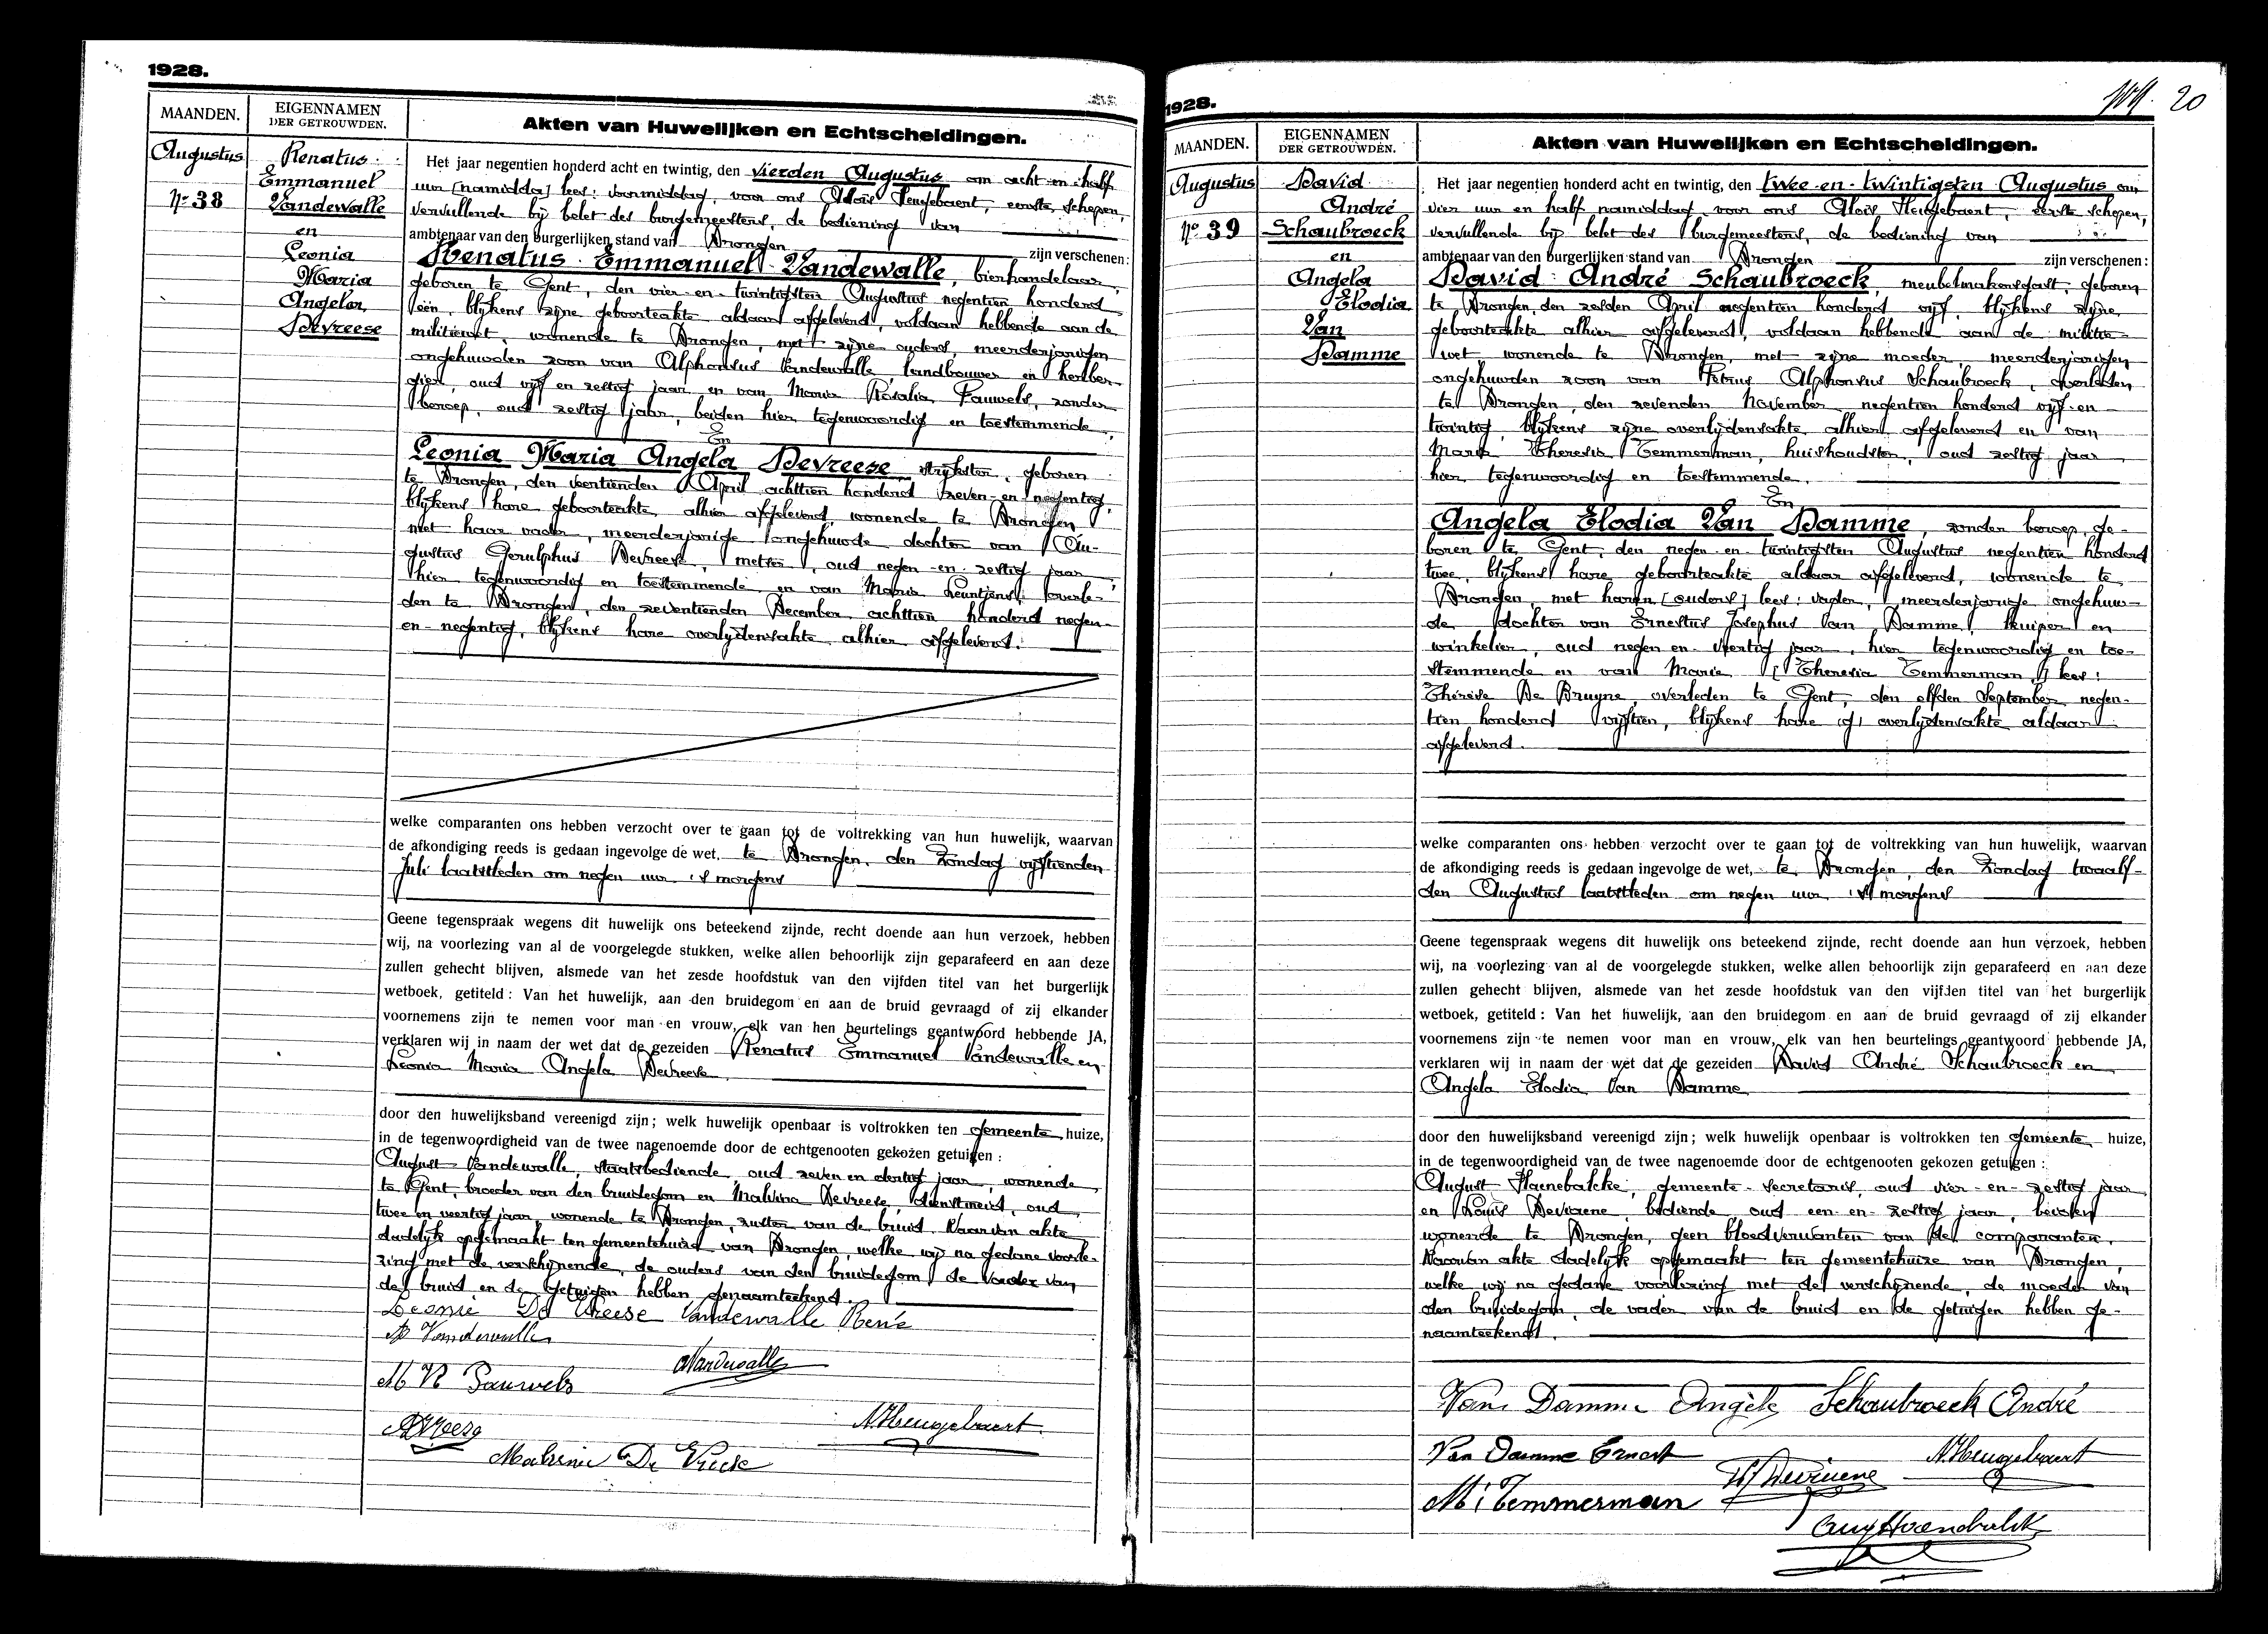 1928.
MAANDEN.
EIGENNAMEN
DER GETROUWDEN.
Akten van Huwelijken en Echtscheidingen.
Augustus
No 38
Renatus
Emmanuel
Vandewalle
en
Leonia
Maria
Angela
Devreese
Het jaar negentien honderd acht en twintig, den vierden Augustus om acht en half
uur [namiddag] lees: voormiddag, voor ons Aloïs Heugebaert, eerste schepen,
vervullende bij belet des burgemeesters, de bediening van
ambtenaar van den burgerlijken stand van Drongen zijn verschenen:
Renatus Emmanuel Vandewalle, bierhandelaar,
geboren te Gent, den vier-en-twintigsten Augustus negentien honderd
één, blijkens zijne geboorteakte aldaar afgeleverd, voldaan hebbende aan de
militiewet, wonende te Drongen, met zijne ouders, meerderjarigen
ongehuwden zoon van Alphonsus Vandewalle landbouwer en herber-
gier, oud vijf en zestig jaar, en van Maria Rosalia Pauwels, zonder
beroep, oud zestig jaar, beiden hier tegenwoordig en toestemmende,
En
Leonia Maria Angela Devreese strijkster, geboren
te Drongen, den veertienden April achttien honderd zeven-en-negentig,
blijkens hare geboorteakte alhier afgeleverd, wonende te Drongen
met haar vader, meerderjarige ongehuwde dochter van Au-
gustus Gerulphus Devreese, metser, oud negen-en-zestig jaar,
hier tegenwoordig en toestemmende en van Maria Leuntjens overle-
den te Drongen, den zeventienden December achttien honderd negen-
en-negentig, blijkens hare overlijdensakte alhier afgeleverd.
welke comparanten ons hebben verzocht over te gaan tot de voltrekking van hun huwelijk, waarvan
de afkondiging reeds is gedaan ingevolge de wet, te Drongen, den Zondag vijftienden
Juli laatstleden om negen uur 's morgens
Geene tegenspraak wegens dit huwelijk ons beteekend zijnde, recht doende aan hun verzoek, hebben
wij, na voorlezing van al de voorgelegde stukken, welke allen behoorlijk zijn geparafeerd en aan deze
zullen gehecht blijven, alsmede van het zesde hoofdstuk van den vijfden titel van het burgerlijk
wetboek, getiteld: Van het huwelijk, aan den bruidegom en aan de bruid gevraagd of zij elkander
voornemens zijn te nemen voor man en vrouw, elk van hen beurtelings geantwoord hebbende JA,
verklaren wij in naam der wet dat de gezeiden Renatus Emmanuel Vandewalle en
Leonia Maria Angela Devreese
door den huwelijksband vereenigd zijn; welk huwelijk openbaar is voltrokken ten gemeente huize,
in de tegenwoordigheid van de twee nagenoemde door de echtgenooten gekozen getuigen:
August Vandewalle, staatsbediende, oud zeven en dertig jaar, wonende
te Gent, broeder van den bruidegom en Malvina Devreese, dienstmeid, oud
twee en veertig jaar, wonende te Drongen, zuster van de bruid. Waarvan akte
dadelijk opgemaakt ten gemeentehuize van Drongen, welke wij na gedane voorle-
zing met de verschijnende, de ouders van den bruidegom, de vader van
de bruid en de getuigen hebben genaamteekend.
Leonie De Vreese Vandewalle René
A Vandewalle
AVandewalle
M R Pauwels
ADVreese
A.Heugebaert
Malvina De Vreese
1928.
20
MAANDEN.
EIGENNAMEN
DER GETROUWDEN.
Akten van Huwelijken en Echtscheidingen.
Augustus
No 39
David
André
Schaubroeck
en
Angela
Elodia
Van
Damme
Het jaar negentien honderd acht en twintig, den twee-en-twintigsten Augustus om
vier uur en half namiddag voor ons Aloïs Heugebaert, eerste schepen,
vervullende bij belet des burgemeesters, de bediening van
ambtenaar van den burgerlijken stand van Drongen zijn verschenen:
David André Schaubroeck, meubelmakersgast, geboren
te Drongen, den zesden April negentien honderd vijf, blijkens zijne
geboorteakte alhier afgeleverd, voldaan hebbende aan de militie-
wet wonende te Drongen, met zijne moeder, meerderjarigen
ongehuwden zoon van Petrus Alphonsus Schaubroeck, overleden
te Drongen, den zevenden November negentien honderd vijf-en-
twintig, blijkens zijne overlijdensakte alhier afgeleverd en van
Marie Theresia Temmerman, huishoudster, oud zestig jaar
hier tegenwoordig en toestemmende.
En
Angela Elodia Van Damme, zonder beroep, ge-
boren te Gent, den negen-en-twintigsten Augustus negentien honderd
twee, blijkens hare geboorteakte aldaar afgeleverd, wonende te
Drongen, met haren [ouders] lees: vader, meerderjarige ongehuw-
de dochter van Ernestus Josephus Van Damme, kuiper en
winkelier, oud negen en veertig jaar, hier tegenwoordig en toe-
stemmende en van Marie [Theresia Temmerman,] lees:
Thérèse De Bruyne overleden te Gent, den elfden September negen-
tien honderd vijftien, blijkens hare overlijdensakte aldaar
afgeleverd.
welke comparanten ons hebben verzocht over te gaan tot de voltrekking van hun huwelijk, waarvan
de afkondiging reeds is gedaan ingevolge de wet, te Drongen, den Zondag twaalf-
den Augustus laatstleden om negen uur 's morgens
Geene tegenspraak wegens dit huwelijk ons beteekend zijnde, recht doende aan hun verzoek, hebben
wij, na voorlezing van al de voorgelegde stukken, welke allen behoorlijk zijn geparafeerd en aan deze
zullen gehecht blijven, alsmede van het zesde hoofdstuk van den vijfden titel van het burgerlijk
wetboek, getiteld: Van het huwelijk, aan den bruidegom en aan de bruid gevraagd of zij elkander
voornemens zijn te nemen voor man en vrouw, elk van hen beurtelings geantwoord hebbende JA,
verklaren wij in naam der wet dat de gezeiden David André Schaubroeck en
Angela Elodia Van Damme
door den huwelijksband vereenigd zijn; welk huwelijk openbaar is voltrokken ten gemeente huize,
in de tegenwoordigheid van de twee nagenoemde door de echtgenooten gekozen getuigen:
August Haenebalcke, gemeente-secretaris, oud vier-en-zestig jaar
en Louis Deviaene, bediende, oud een-en-zestig jaar, beiden
wonende te Drongen, geen bloedverwanten van de comparanten.
Waarvan akte dadelijk opgemaakt ten gemeentehuize van Drongen,
welke wij na gedane voorlezing met de verschijnende, de moeder van
den bruidegom, de vader van de bruid en de getuigen hebben ge-
naamteekend.
Van Damme Angèle Schaubroeck André
Van Damme Ernest
A.Heugebaert
M: Temmerman